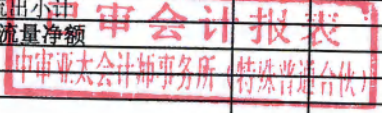 出小计
流量净额
中审会计报表
中审亚太会计师事务所（特殊普通合伙）